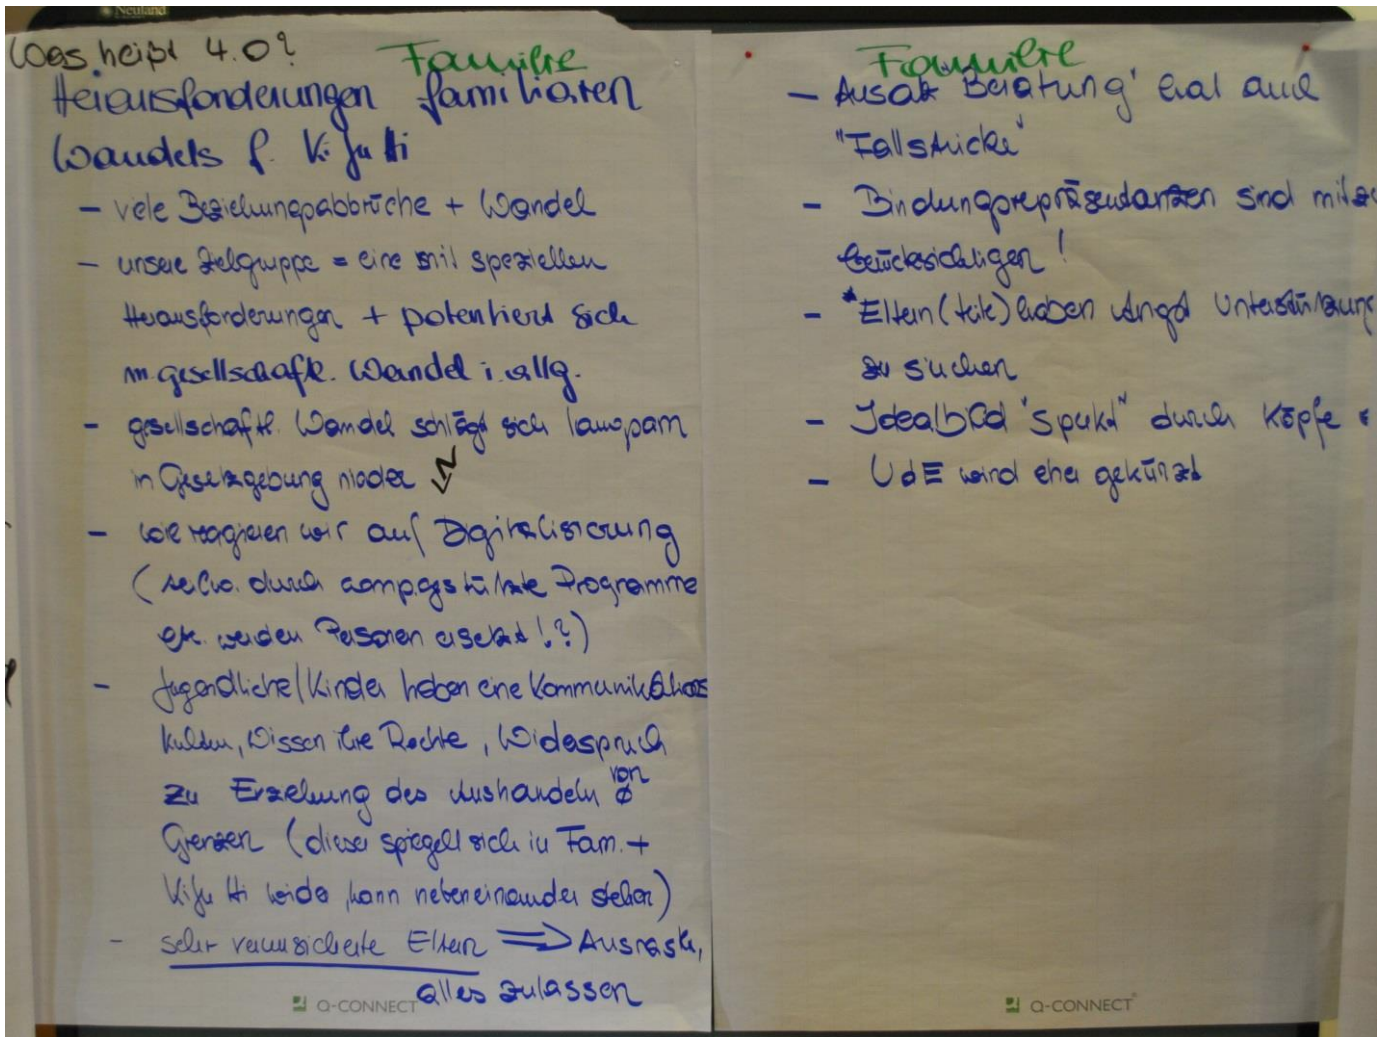 Neuland
Was heißt 4.0?
Familie
Herausforderungen familiären
Wandels f. KiJuHi
- viele Beziehungsabbrüche + Wandel
- unsere Zielgruppe = eine mit speziellen
Herausforderungen + potenziert sich
m. gesellschaftl. Wandel i. allg.
- gesellschaftl. Wandel schlägt sich langsam
in Gesetzgebung nieder
- wie reagieren wir auf Digitalisierung
durch comp.gestützte Programme
etc. werden Personen ersetzt!?)
- Jugendliche/Kinder haben eine Kommunikations
kultur, Wissen ihre Rechte, Widerspruch
zu Erziehung des Aushandeln von
Grenzen (dieser spiegelt sich in Fam. +
KiJuHi wider, kann nebeneinander stehen)
- sehr verunsicherte Eltern ⇒ Ausraste,
alles zulassen
Q-CONNECT
Familie
- Ansatz Beratung' hat auch
"Fallstricke"
- Bindungsrepräsentanzen sind mitzu
berücksichtigen!
- *Eltern(teile) haben Angst Unterstützung
zu suchen
- Idealbild "spukt" durch Köpfe
- UdE wird eher gekürzt
Q-CONNECT